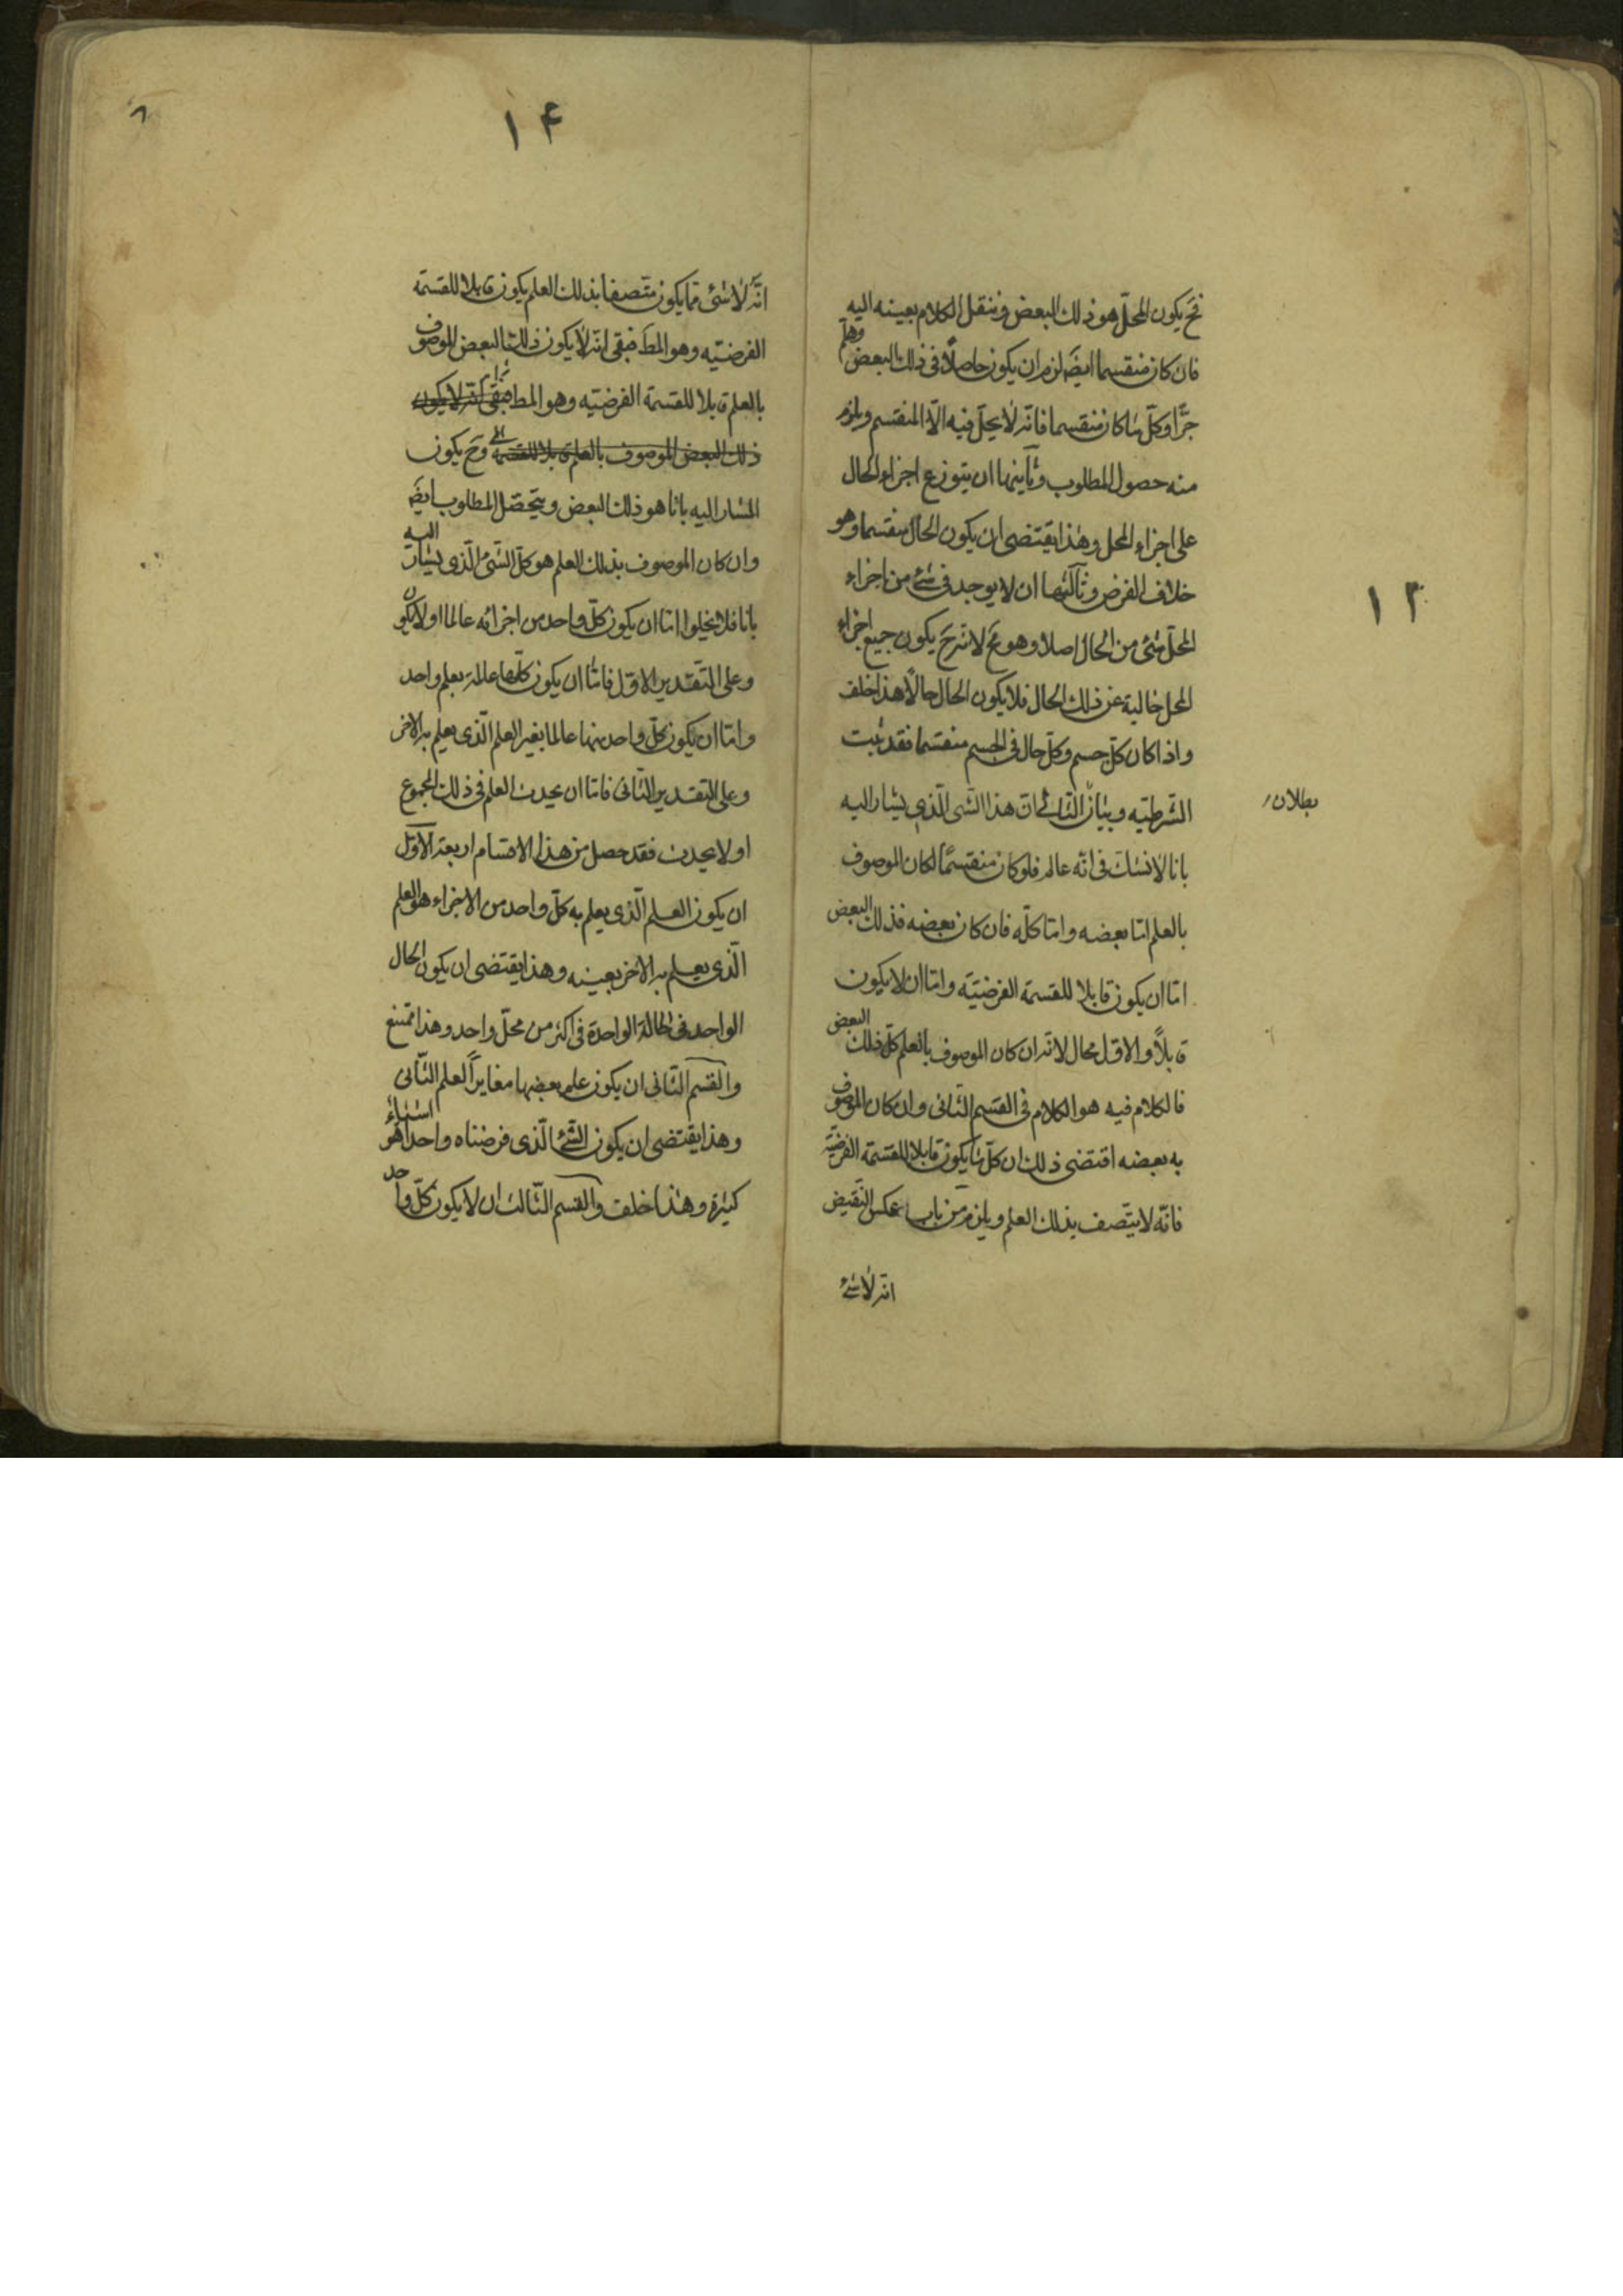 ١٣
فح يكون المحلّ هو ذلك البعض وننقل الكلام بعينه اليه
فان كان منقسما ايضَ لزم ان يكون حاصلًا فى ذلك البعض وهلمّ
جرًّا وكلّ ما كان منقسما فانّه لا يحلّ فيه الّا المنقسم ويلزم
منه حصول المطلوب وثانيها ان يتوزع اجزاء الحال
على اجزاء المحل وهذا يقتضى ان يكون الحال منقسما وهو
خلاف الفرض وثالثها ان لا يوجد فى شئ من اجزاء
المحلّ شئ من الحال اصلا وهو مح لانه ح يكون جميع اجزاء
المحل خالية عن ذلك الحال فلا يكون الحال حالًّا هذا خلف
واذا كان كلّ جسم وكلّ حال فى الجسم منقسما فقد ثبت
الشّرطيّه وبيان التّالى انّ هذا الشى الّذى يشار اليه
بطلان
بانا لا نشك فى انّه عالم فلو كان منقسمًا لكان الموصوف
بالعلم امّا بعضه وامّا كلّه فان كان بعضه فذلك البعض
امّا ان يكون قابلا للقسمة الفرضيّه وامّا ان لا يكون
قابلًا والاوّل محال لانّه ان كان الموصوف بالعلم كلّ ذلك البعض
فالكلام فيه هو الكلام فى القسم الثّانى وان كان الموصوف
به بعضه اقتضى ذلك ان كلّ ما يكون قابلا للقسمة الفرضيّه
فانّه لا يتّصف بذلك العلم ويلزم من باب عكس النّقيض
انّه لا شئ
١۴
٨
انّه لا شئ ممّا يكون متّصفا بذلك العلم يكون قابلا للقسمة
الفرضيّه وهو المطَ فبقى انّه لا يكون ذلك البعض الموصوف
بالعلم قابلا للقسمة الفرضيّه وهو المط فبقى انّه لا يكون
ذلك البعض الموصوف بالعلم قابلا للقسمة وح يكون
المشار اليه بانا هو ذلك البعض ويتحصّل المطلوب ايضَ
وان كان الموصوف بذلك العلم هو كلّ الشّئ الّذى يشار اليه
بانا فلا يخلوا امّا ان يكون كلّ واحد من اجزائه عالما او لا يكون
وعلى التّقدير الاوّل فامّا ان يكون كلّها عالمة بعلم واحد
وامّا ان يكون كلّ واحد منها عالما بغير العلم الّذى يعلم به الاخر
وعلى التقدير الثّانى فامّا ان يحدث العلم فى ذلك المجموع
او لا يحدث فقد حصل من هذا الاقسام اربعة الاوّل
ان يكون العلم الّذى يعلم به كلّ واحد من الاجزاء هو العلم
الّذى يعلم به الاخر بعينه وهذا يقتضى ان يكون الحال
الواحد فى الحالة الواحدة فى اكثر من محلّ واحد وهذا ممتنع
والقسم الثّانى ان يكون علم بعضها مغايراً لعلم الثّانى
وهذا يقتضى ان يكون الشّئ الّذى فرضناه واحدا هو اشياء
كثيرة وهذا خلف والقسم الثّالث ان لا يكون كلّ واحد